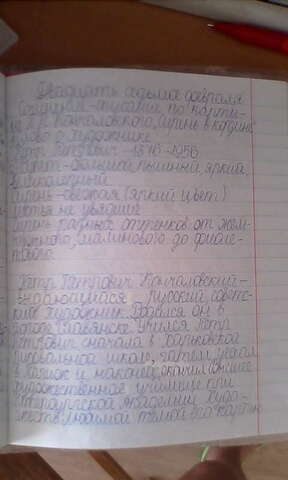 Двадцать седьмое февраля
Сочинение-описание по карти-
не П.П. Кончаловского „Сирень в корзине"
Слово о художнике
Петр Петрович - 1876-1956
Букет - большой, пышный, яркий
великолепный
Сирень - свежая (яркий цвет)
листья не увядшие
Сирень разных оттенков от жем-
чужного, малинового до фиоле-
тового
Петр Петрович Кончаловский -
выдающийся русский, советс-
кий художник. Родился он в
городе Славянске. Учился Петр
Петрович сначала в Харьковской
рисовальной школе, затем уехал
в Париж и наконец, окончил высшее
художественное училище при
Петербургской Академии Худо-
жеств. Любимой темой его картин